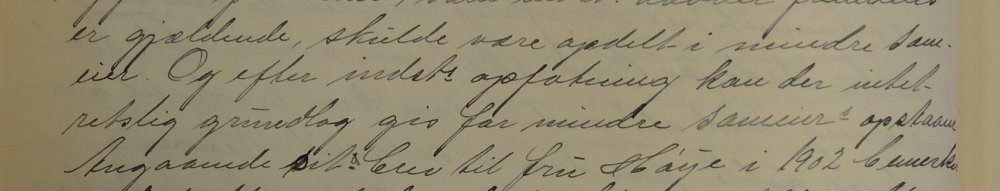 er gjældende, skulde være opdelt i mindre sam-
eier. Og efter indsts opfatning kan der intet
retslig grundlag gis for mindre sameiers opstaaen
Angaaende sit brev til fru Høye i 1902 bemerke